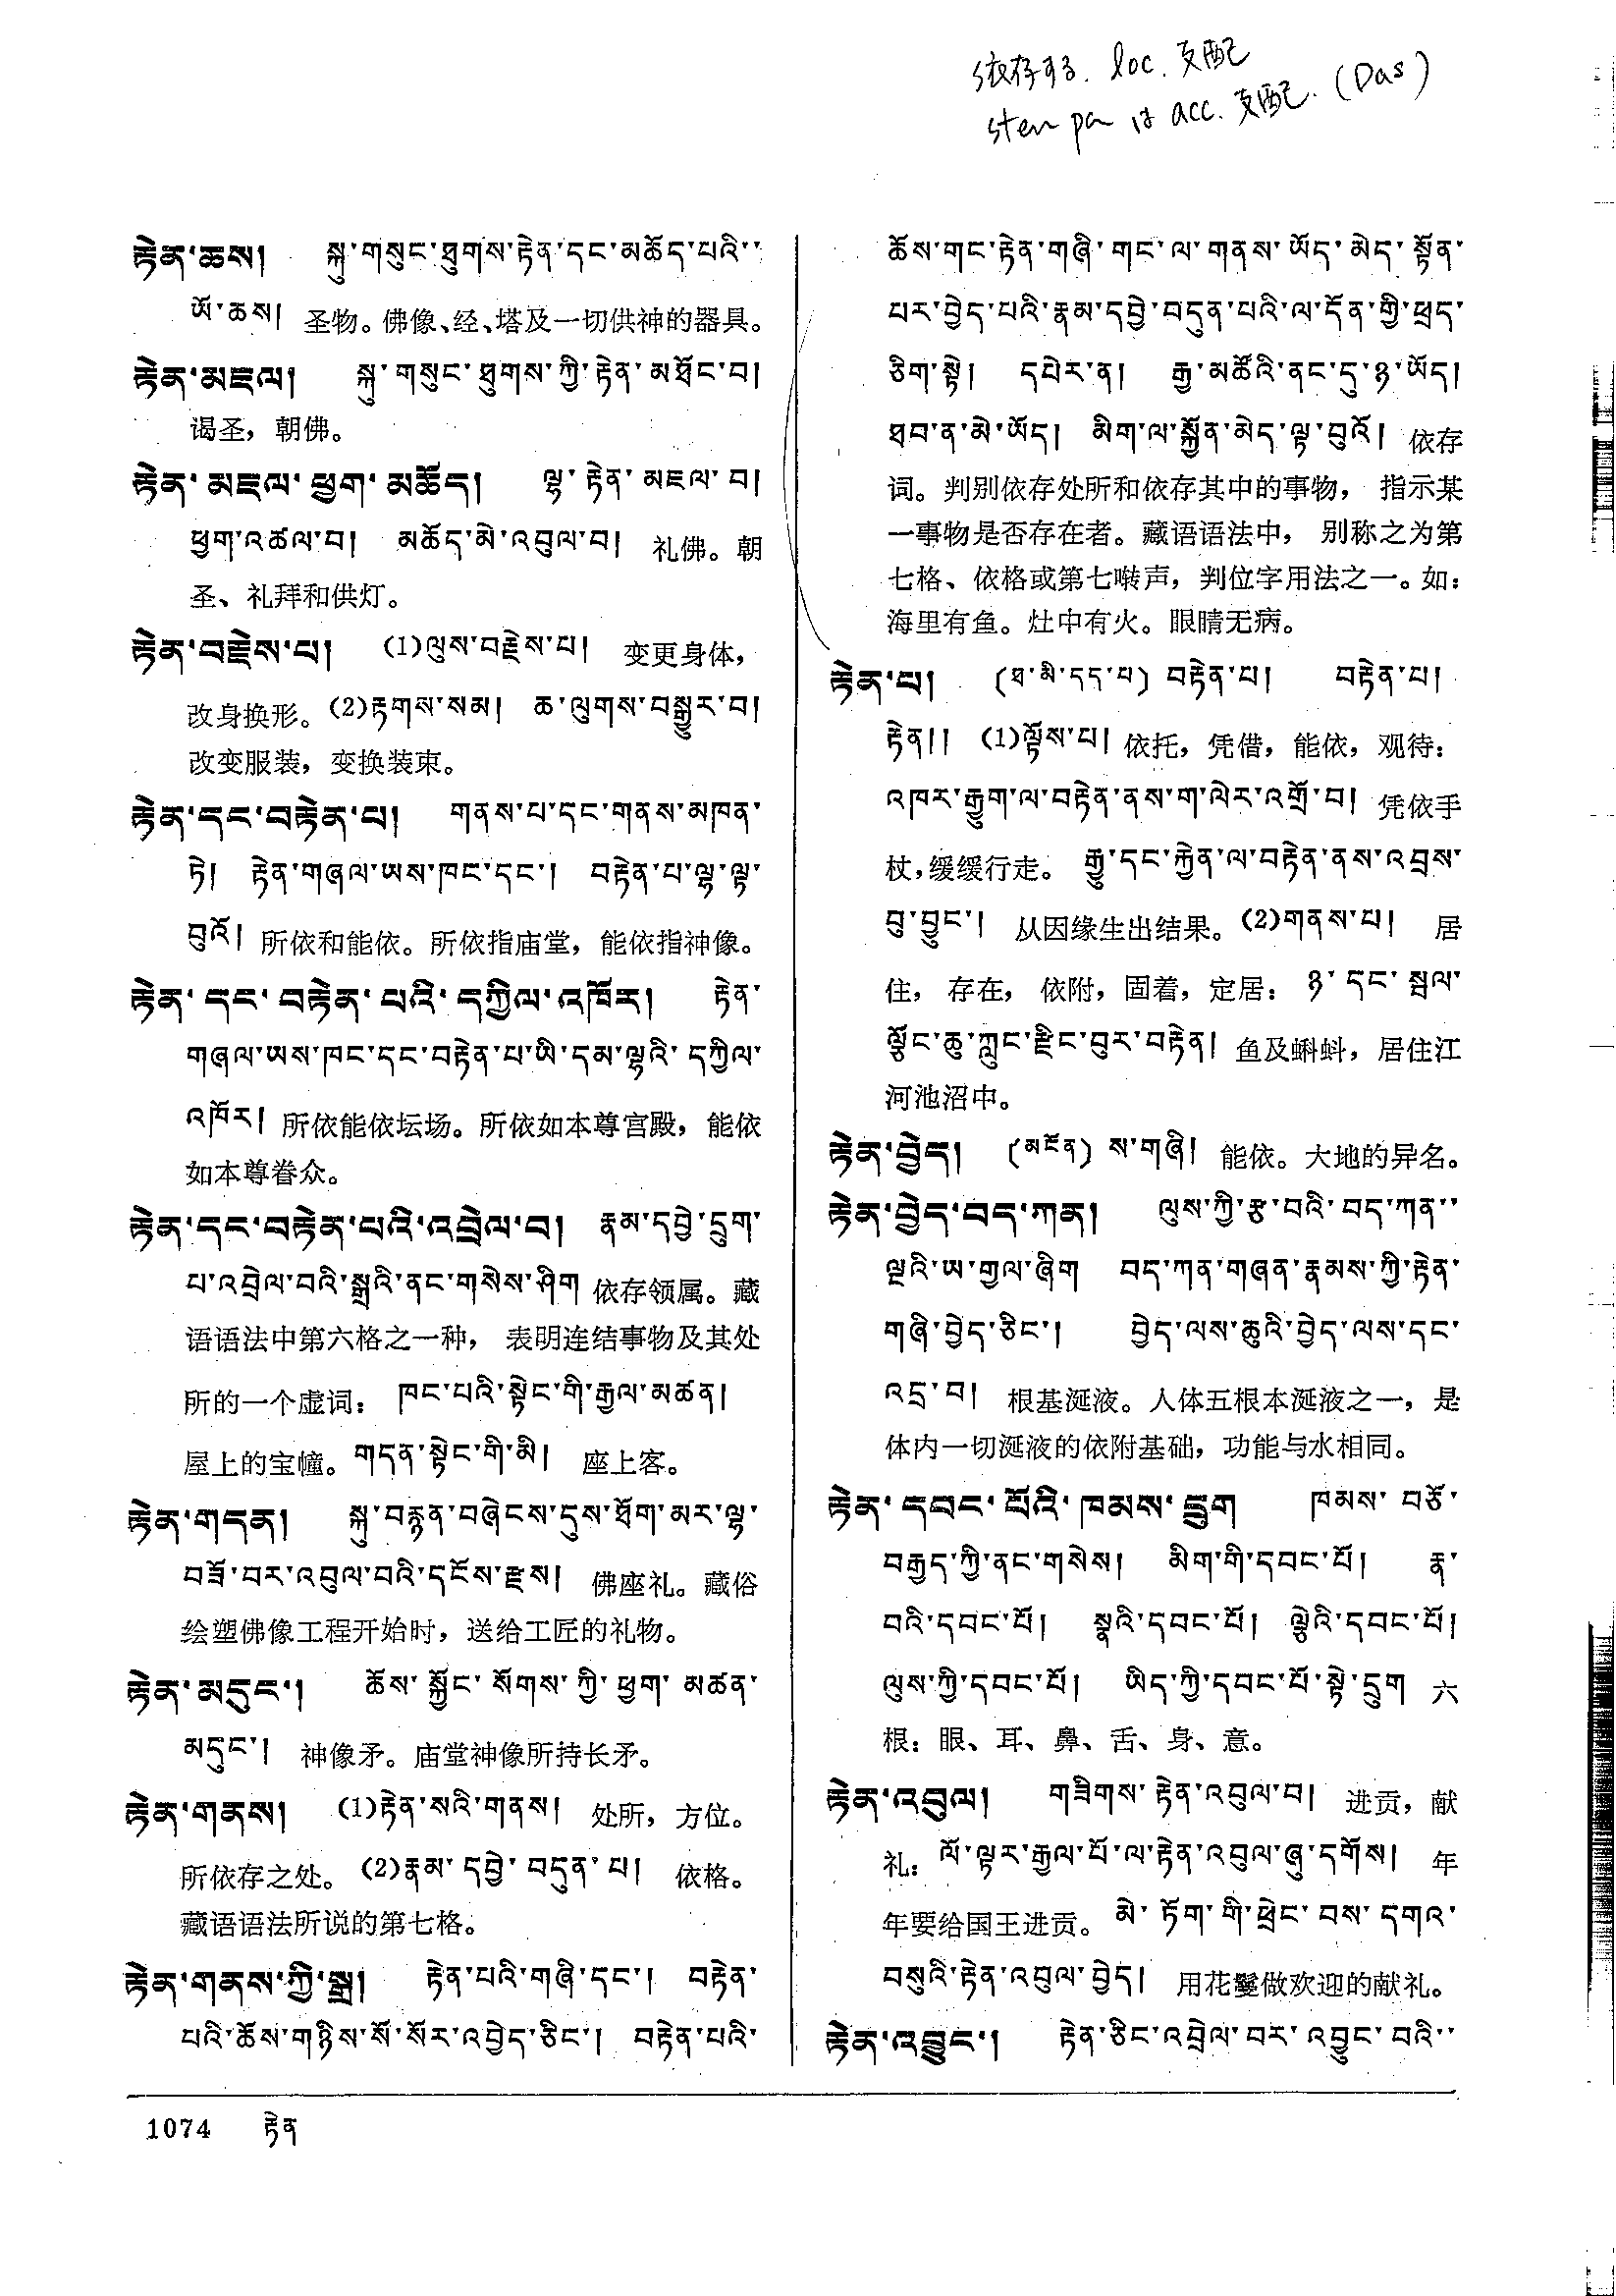 依存する. loc. 支配
sten pa は acc. 支配. (Das)
རྟེན་ཆས། སྐུ་གསུང་ཐུགས་རྟེན་དང་མཆོད་པའི་་
ཡོ་ཆས། 圣物。佛像、经、塔及一切供神的器具。
རྟེན་མཇལ། སྐུ་གསུང་ཐུགས་ཀྱི་རྟེན་མཐོང་བ།
谒圣，朝佛。
རྟེན་མཇལ་ཕྱག་མཆོད། ལྷ་རྟེན་མཇལ་བ།
ཕྱག་འཚལ་བ། མཆོད་མེ་འབུལ་བ། 礼佛。朝
圣、礼拜和供灯。
རྟེན་བརྗེས་པ། (1)ལུས་བརྗེས་པ། 变更身体，
改身换形。(2)རྟགས་སམ། ཆ་ལུགས་བསྒྱུར་བ།
改变服装，变换装束。
རྟེན་དང་བརྟེན་པ། གནས་པ་དང་གནས་མཁན་
ཏེ། རྟེན་གཞལ་ཡས་ཁང་དང་། བརྟེན་པ་ལྷ་ལྟ་
བུའོ། 所依和能依。所依指庙堂，能依指神像。
རྟེན་དང་བརྟེན་པའི་དཀྱིལ་འཁོར། རྟེན་
གཞལ་ཡས་ཁང་དང་བརྟེན་པ་ཡི་དམ་ལྷའི་དཀྱིལ་
འཁོར། 所依能依坛场。所依如本尊宫殿，能依
如本尊眷众。
རྟེན་དང་བརྟེན་པའི་འབྲེལ་བ། རྣམ་དབྱེ་དྲུག་
པ་འབྲེལ་བའི་སྒྲའི་ནང་གསེས་ཤིག 依存领属。藏
语语法中第六格之一种， 表明连结事物及其处
所的一个虚词： ཁང་པའི་སྟེང་གི་རྒྱལ་མཚན།
屋上的宝幢。གདན་སྟེང་གི་མི། 座上客。
རྟེན་གདན། སྐུ་བརྙན་བཞེངས་དུས་ཐོག་མར་ལྷ་
བཟོ་བར་འབུལ་བའི་དངོས་རྫས། 佛座礼。藏俗
绘塑佛像工程开始时，送给工匠的礼物。
རྟེན་མདུང་། ཆོས་སྐྱོང་སོགས་ཀྱི་ཕྱག་མཚན་
མདུང་། 神像矛。庙堂神像所持长矛。
རྟེན་གནས། (1)རྟེན་སའི་གནས། 处所，方位。
所依存之处。(2)རྣམ་དབྱེ་བདུན་པ། 依格。
藏语语法所说的第七格。
རྟེན་གནས་ཀྱི་སྒྲ། རྟེན་པའི་གཞི་དང་། བརྟེན་
པའི་ཆོས་གཉིས་སོ་སོར་འབྱེད་ཅིང་། བརྟེན་པའི་
ཆོས་གང་རྟེན་གཞི་གང་ལ་གནས་ཡོད་མེད་སྟོན་
པར་བྱེད་པའི་རྣམ་དབྱེ་བདུན་པའི་ལ་དོན་གྱི་ཕྲད་
ཅིག་སྟེ། དཔེར་ན། རྒྱ་མཚོའི་ནང་དུ་ཉ་ཡོད།
ཐབ་ན་མེ་ཡོད། མིག་ལ་སྐྱོན་མེད་ལྟ་བུའོ། 依存
词。判别依存处所和依存其中的事物， 指示某
一事物是否存在者。藏语语法中， 别称之为第
七格、依格或第七啭声，判位字用法之一。如：
海里有鱼。灶中有火。眼睛无病。
རྟེན་པ། (ཐ་མི་དད་པ) བརྟེན་པ། བརྟེན་པ།
རྟེན།། (1)ལྟོས་པ། 依托，凭借，能依，观待：
འཁར་རྒྱུག་ལ་བརྟེན་ནས་ག་ལེར་འགྲོ་བ། 凭依手
杖，缓缓行走。 རྒྱུ་དང་རྐྱེན་ལ་བརྟེན་ནས་འབྲས་
བུ་བྱུང་། 从因缘生出结果。(2)གནས་པ། 居
住， 存在， 依附，固着，定居： ཉ་དང་སྦལ་
ལྕོང་ཆུ་ཀླུང་རྫིང་བུར་བརྟེན། 鱼及蝌蚪，居住江
河池沼中。
རྟེན་བྱེད། (མངོན) ས་གཞི། 能依。大地的异名。
རྟེན་བྱེད་བད་ཀན། ལུས་ཀྱི་རྩ་བའི་བད་ཀན་་
ལྔའི་ཡ་གྱལ་ཞིག བད་ཀན་གཞན་རྣམས་ཀྱི་རྟེན་
གཞི་བྱེད་ཅིང་། བྱེད་ལས་ཆུའི་བྱེད་ལས་དང་
འདྲ་བ། 根基涎液。人体五根本涎液之一，是
体内一切涎液的依附基础，功能与水相同。
རྟེན་དབང་པོའི་ཁམས་དྲུག ཁམས་བཅོ་
བརྒྱད་ཀྱི་ནང་གསེས། མིག་གི་དབང་པོ། རྣ་
བའི་དབང་པོ། སྣའི་དབང་པོ། ལྕེའི་དབང་པོ།
ལུས་ཀྱི་དབང་པོ། ཡིད་ཀྱི་དབང་པོ་སྟེ་དྲུག 六
根：眼、耳、鼻、舌、身、意。
རྟེན་འབུལ། གཟིགས་རྟེན་འབུལ་བ། 进贡，献
礼： ལོ་ལྟར་རྒྱལ་པོ་ལ་རྟེན་འབུལ་ཞུ་དགོས། 年
年要给国王进贡。མེ་ཏོག་གི་ཕྲེང་བས་དགའ་
བསུའི་རྟེན་འབུལ་བྱེད། 用花鬘做欢迎的献礼。
རྟེན་འབྱུང་། རྟེན་ཅིང་འབྲེལ་བར་འབྱུང་བའི་་
1074 རྟེན